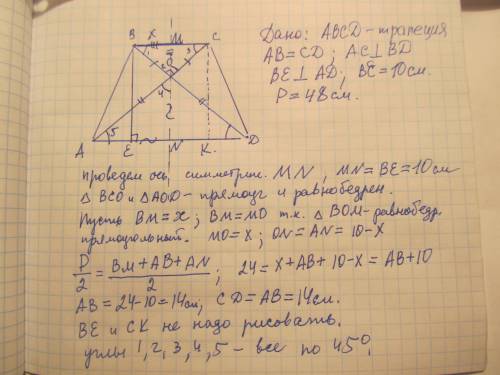 Дано: ABCD-трапеция
AB=CD; AC⊥BD
BE⊥AD; BE=10см.
P=48см.
B X M C
3
2 O
1
4
5
A E N K. D
проведем ось симметрии. MN, MN=BE=10см
△BCO и △AOD-прямоуг и равнобедрен.
Пусть BM=x; BM=MO т.к. △BOM-равнобедр.
прямоугольный. MO=X; ON=AN=10-X
P/2 = BM+AB+AN/2; 24=X+AB+10-X=AB+10
AB=24-10=14см, CD=AB=14см.
BE и CK не надо рисовать.
углы 1,2,3,4,5-все по 45°.